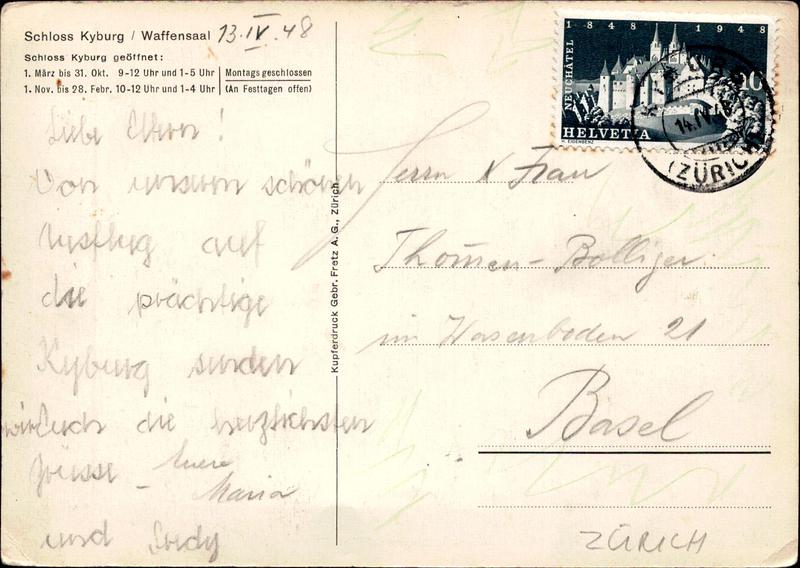 Schloss Kyburg / Waffensaal 13.IV.48
Schloss Kyburg geöffnet:
1. März bis 31. Okt. 9-12 Uhr und 1-5 Uhr | Montags geschlossen
1. Nov. bis 28. Febr. 10-12 Uhr und 1-4 Uhr | (An Festtagen offen)
Liebe Eltern!
Von unseren schönen
Ausflug auf
die prächtige
Kyburg senden
wir Euch die herzlichsten
Grüsse - Eure
Maria
und
Kupferdruck Gebr. Fretz A.G., Zürich
1848 1948
NEUCHÂTEL
10
HELVETIA
H. EIDENBENZ
14.IV.
(ZÜRICH)
Herrn & Frau
Thomen-Bolliger
im Wasenboden 21
Basel
ZÜRICH